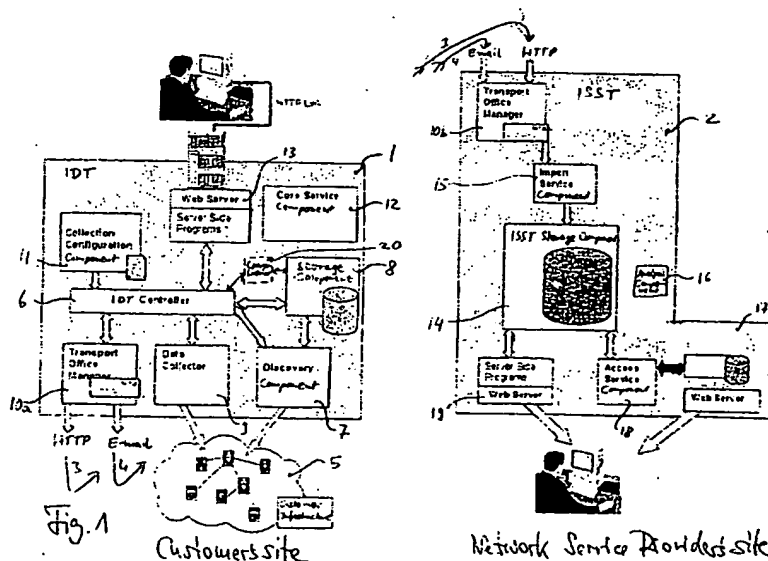 IDT
1
13
Web Server
Server Side
Programs
Core Service
Component
12
Collection
Configuration
Component
11
20
Storage
Component
8
6
IDT Controller
Transport
Office
Manager
10a
Data
Collector
Discovery
Component
7
HTTP
E-mail
3
4
5
Customer
Infrastructure
Fig. 1
Customer's site
3
4
Email
HTTP
ISST
2
Transport
Office
Manager
10b
15
Import
Service
Component
ISST Storage Component
14
16
17
Server Side
Programs
Web Server
19
Access
Service
Component
18
Web Server
Network Service Provider's site